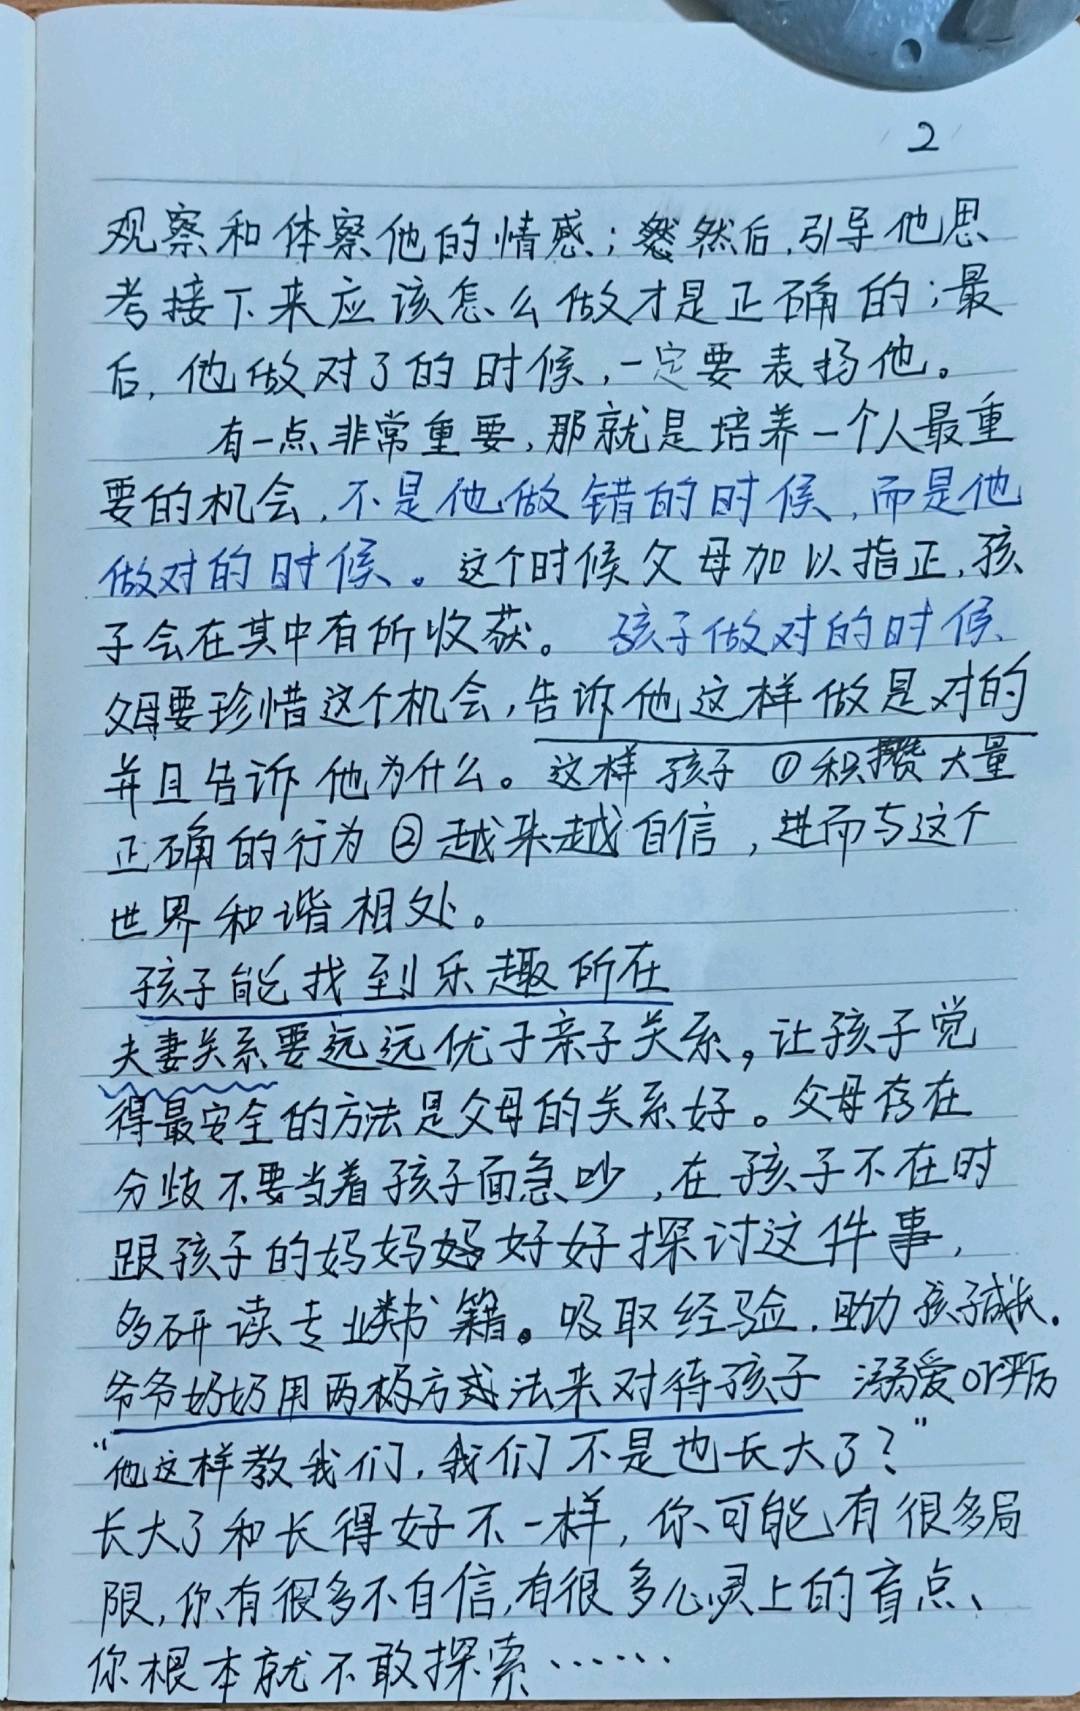 2
观察和体察他的情感；然后，引导他思
考接下来应该怎么做才是正确的；最
后，他做对了的时候，一定要表扬他。
有一点非常重要，那就是培养一个人最重
要的机会，不是他做错的时候，而是他
做对的时候。这个时候父母加以指正，孩
子会在其中有所收获。孩子做对的时候、
父母要珍惜这个机会，告诉他这样做是对的
并且告诉他为什么。这样孩子①积攒大量
正确的行为②越来越自信，进而与这个
世界和谐相处。
孩子能找到乐趣所在
夫妻关系要远远优于亲子关系。让孩子觉
得最安全的方法是父母的关系好。父母存在
分歧不要当着孩子面急吵，在孩子不在时
跟孩子的妈妈好好探讨这件事，
多研读专业类书籍。吸取经验，助孩子成长。
爷爷奶奶用两极方法来对待孩子 溺爱or严厉
“他这样教我们，我们不是也长大了？”
长大了和长得好不一样，你可能有很多局
限，你有很多不自信，有很多心灵上的盲点、
你根本就不敢探索……